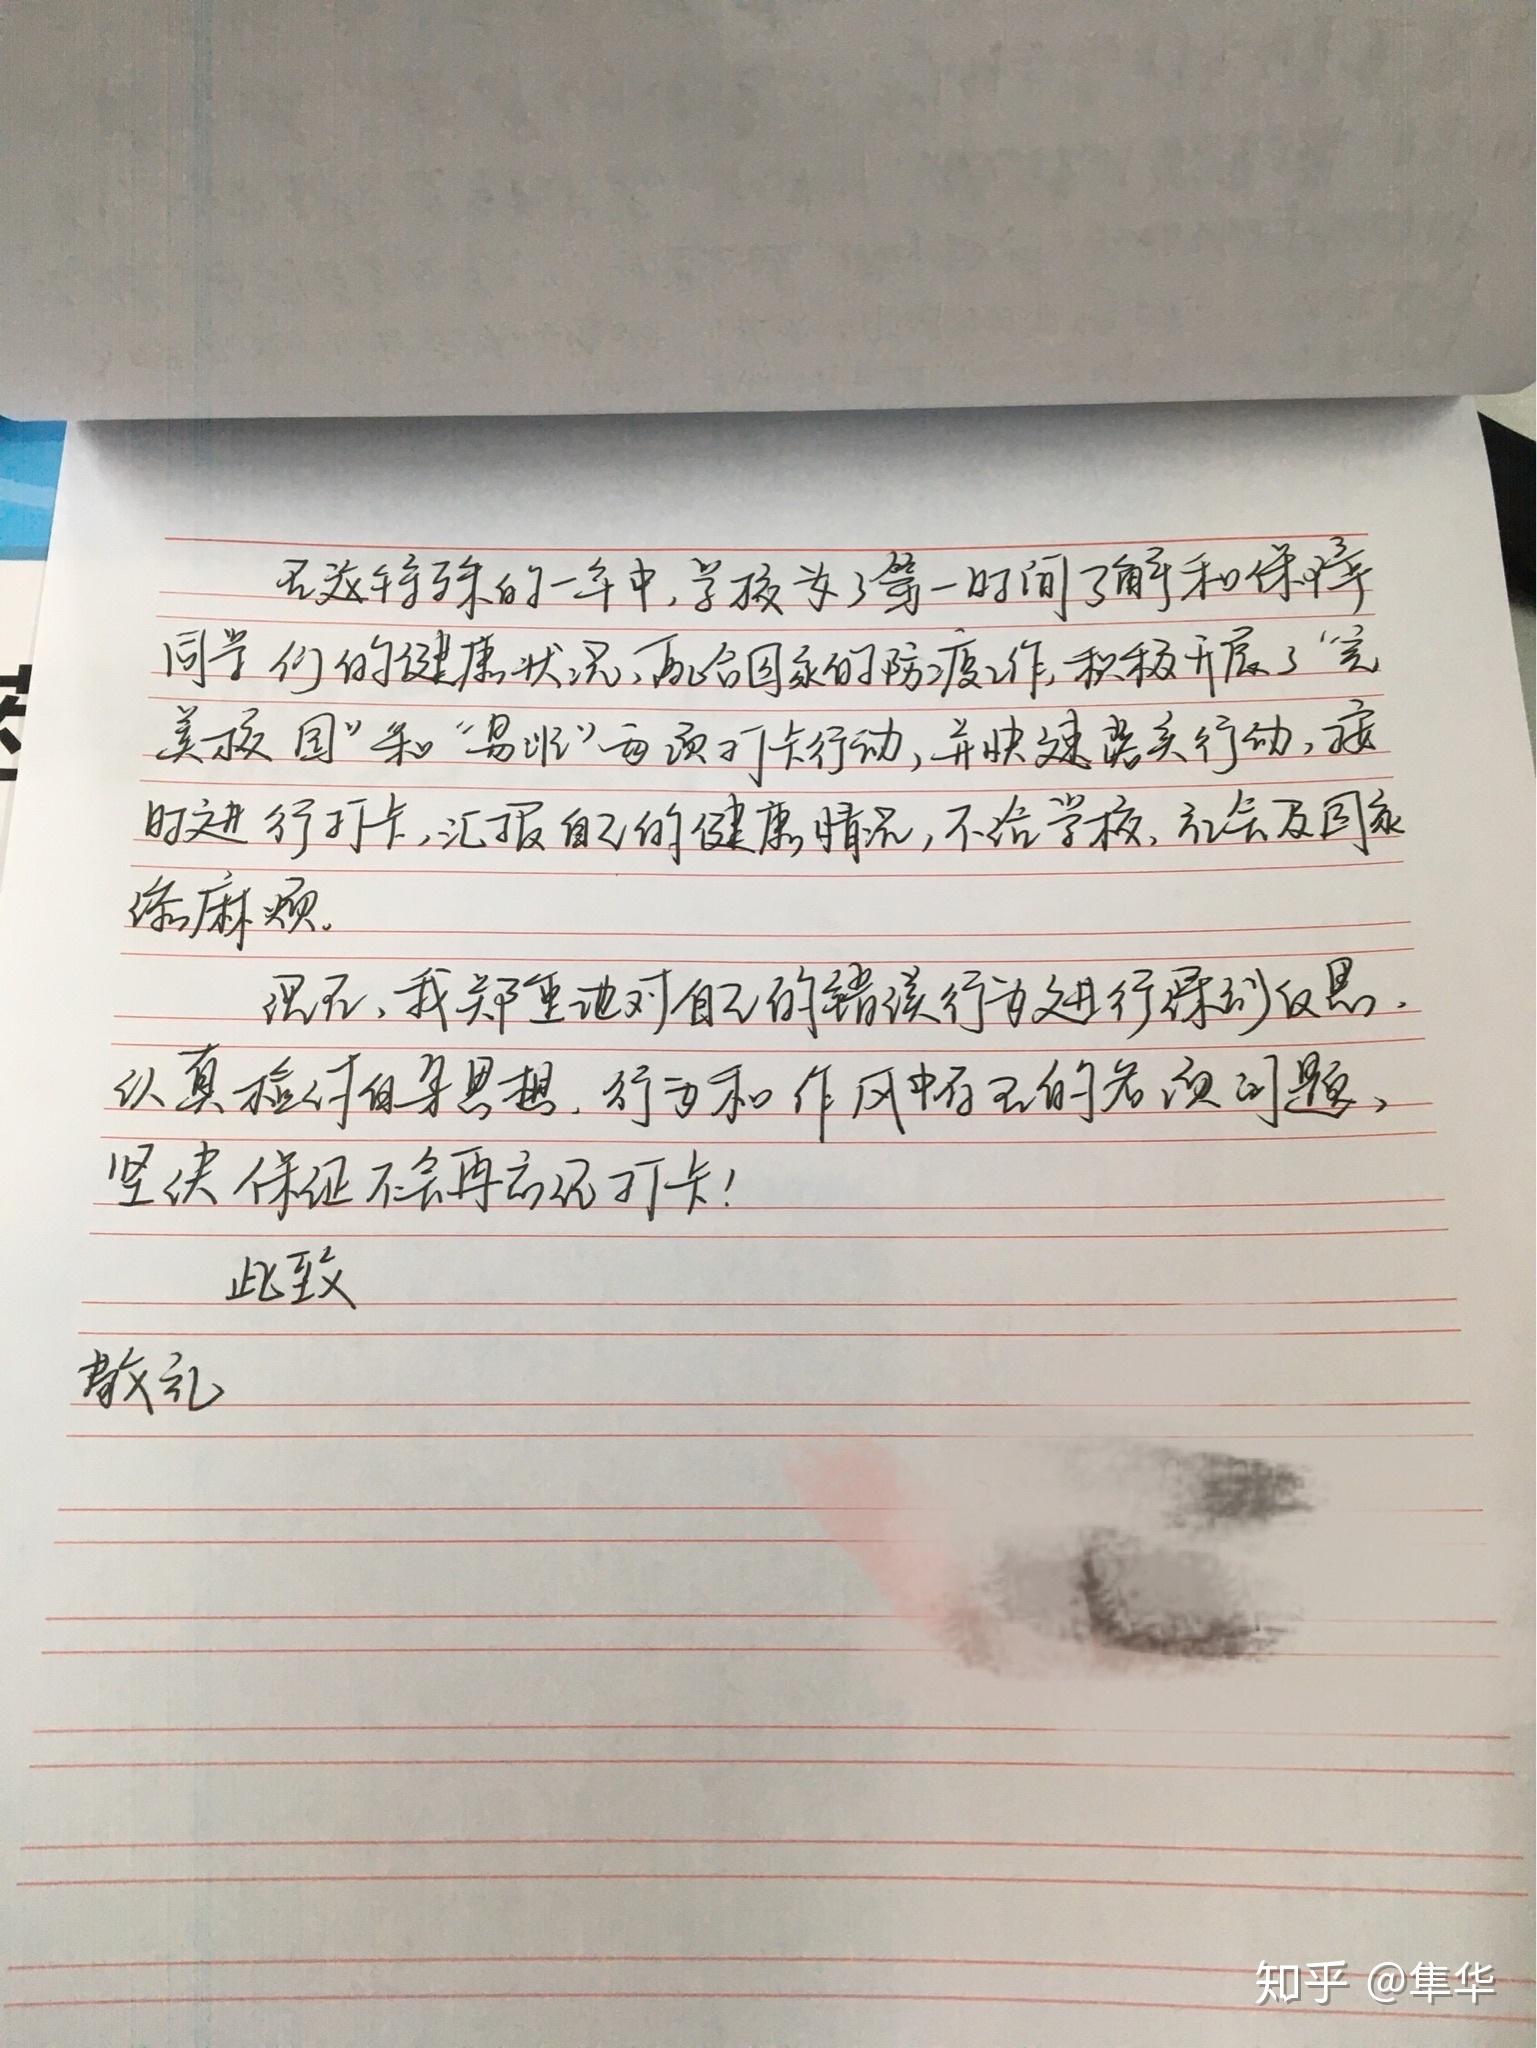 在这特殊的一年中，学校为了第一时间了解和保障
同学们的健康状况，配合国家的防疫工作，积极开展了“完
美校园”和“易班”两项打卡行动，并快速落实行动，按
时进行打卡，汇报自己的健康情况，不给学校、社会及国家
添麻烦。
现在，我郑重地对自己的错误行为进行深刻反思，
认真检讨自身思想、行为和作风中存在的各项问题，
坚决保证不会再忘记打卡！
此致
敬礼
知乎 @隼华